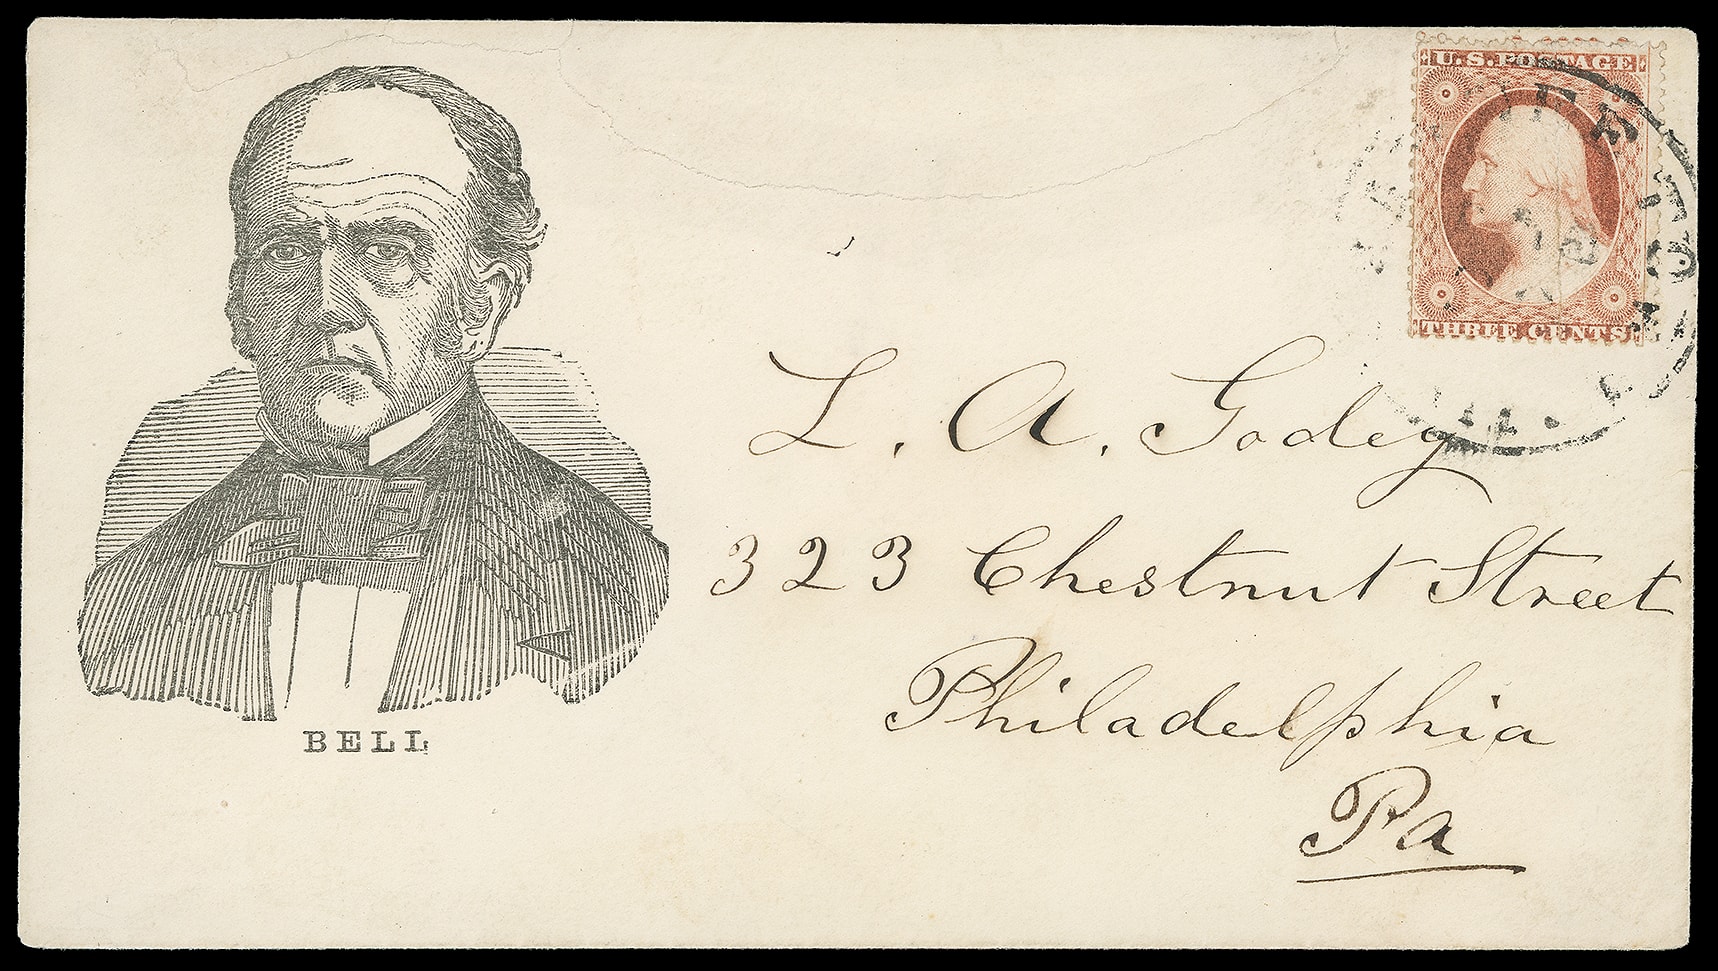 U.S.POSTAGE
THREE CENTS
L. A. Godey
323 Chestnut Street
Philadelphia
Pa
BELL